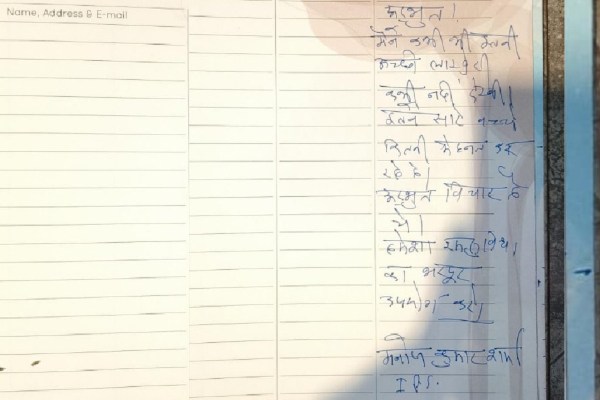 Name, Address & E-mail
अद्भुत!
मैंने कभी भी इतनी
अच्छी लाइब्रेरी
कभी नहीं देखी।
इतने सारे बच्चे
कितनी मेहनत कर
रहे हैं।
अद्भुत विचार है
ये।
हमेशा
का भरपूर
उपयोग करें।
मनोज कुमार शर्मा
IPS.